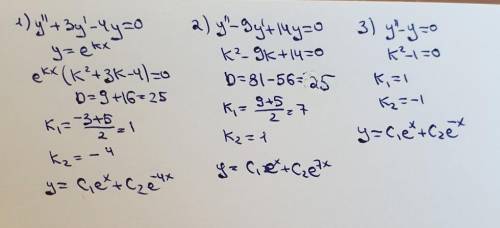 1) y'' + 3y' - 4y = 0
y = e^{kx}
e^{kx}(k² + 3k - 4) = 0
D = 9 + 16 = 25
k₁ = \frac{-3+5}{2} = 1
k₂ = -4
y = C₁e^{x} + C₂e^{-4x}
2) y'' - 9y' + 14y = 0
k² - 9k + 14 = 0
D = 81 - 56 = 25
k₁ = \frac{9+5}{2} = 7
k₂ = 1
y = C₁e^{x} + C₂e^{7x}
3) y'' - y = 0
k² - 1 = 0
k₁ = 1
k₂ = -1
y = C₁e^{x} + C₂e^{-x}